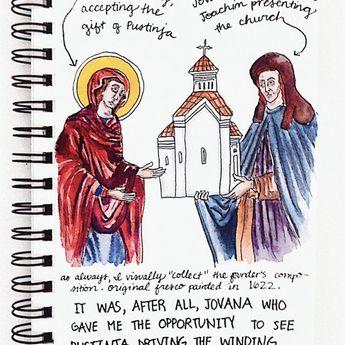 accepting the
gift of Pustinja
Joachim presenting
the church
as always, I visually "collect" the founder's compo-
sition. original fresco painted in 1622.
IT WAS, AFTER ALL, JOVANA WHO
GAVE ME THE OPPORTUNITY TO SEE
PUSTINJA DRIVING THE WINDING